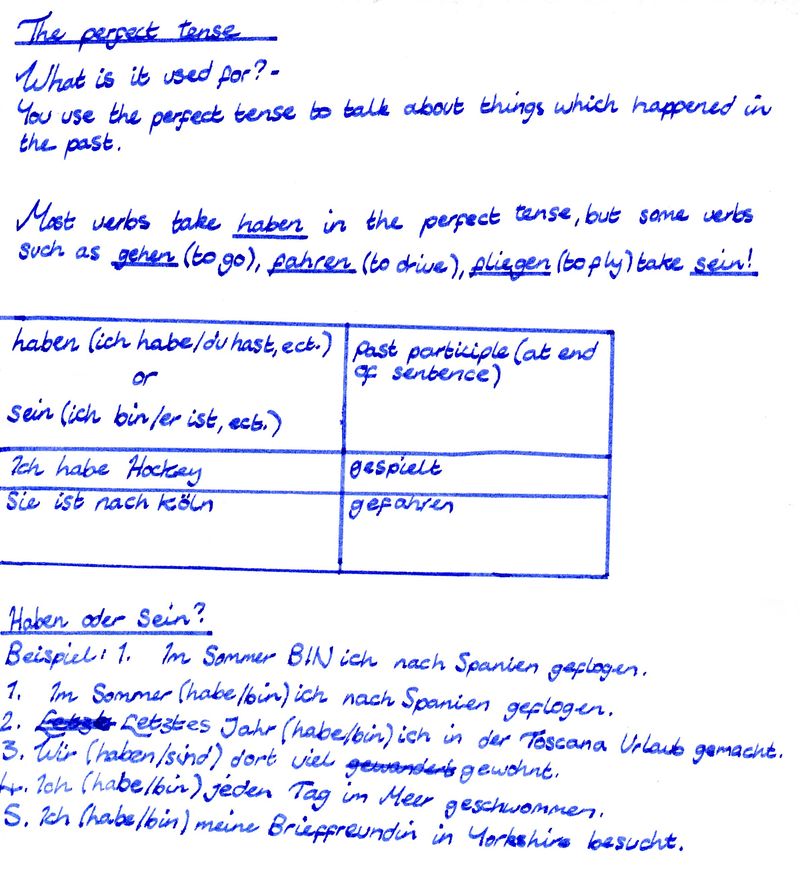 The perfect tense
What is it used for?-
You use the perfect tense to talk about things which happened in
the past.
Most verbs take haben in the perfect tense, but some verbs
such as gehen (to go), fahren (to drive), fliegen (to fly) take sein!
haben (ich habe/du hast, ect.)
or
sein (ich bin/er ist, ect.)
past participle (at end
of sentence)
Ich habe Hockey
gespielt
Sie ist nach Köln
gefahren
Haben oder Sein?
Beispiel: 1. Im Sommer BIN ich nach Spanien geflogen.
1. Im Sommer (habe/bin) ich nach Spanien geflogen.
2. Letztes Jahr (habe/bin) ich in der Toscana Urlaub gemacht.
3. Wir (haben/sind) dort viel gewohnt.
4. Ich (habe/bin) jeden Tag im Meer geschwommen.
5. Ich (habe/bin) meine Brieffreundin in Yorkshire besucht.